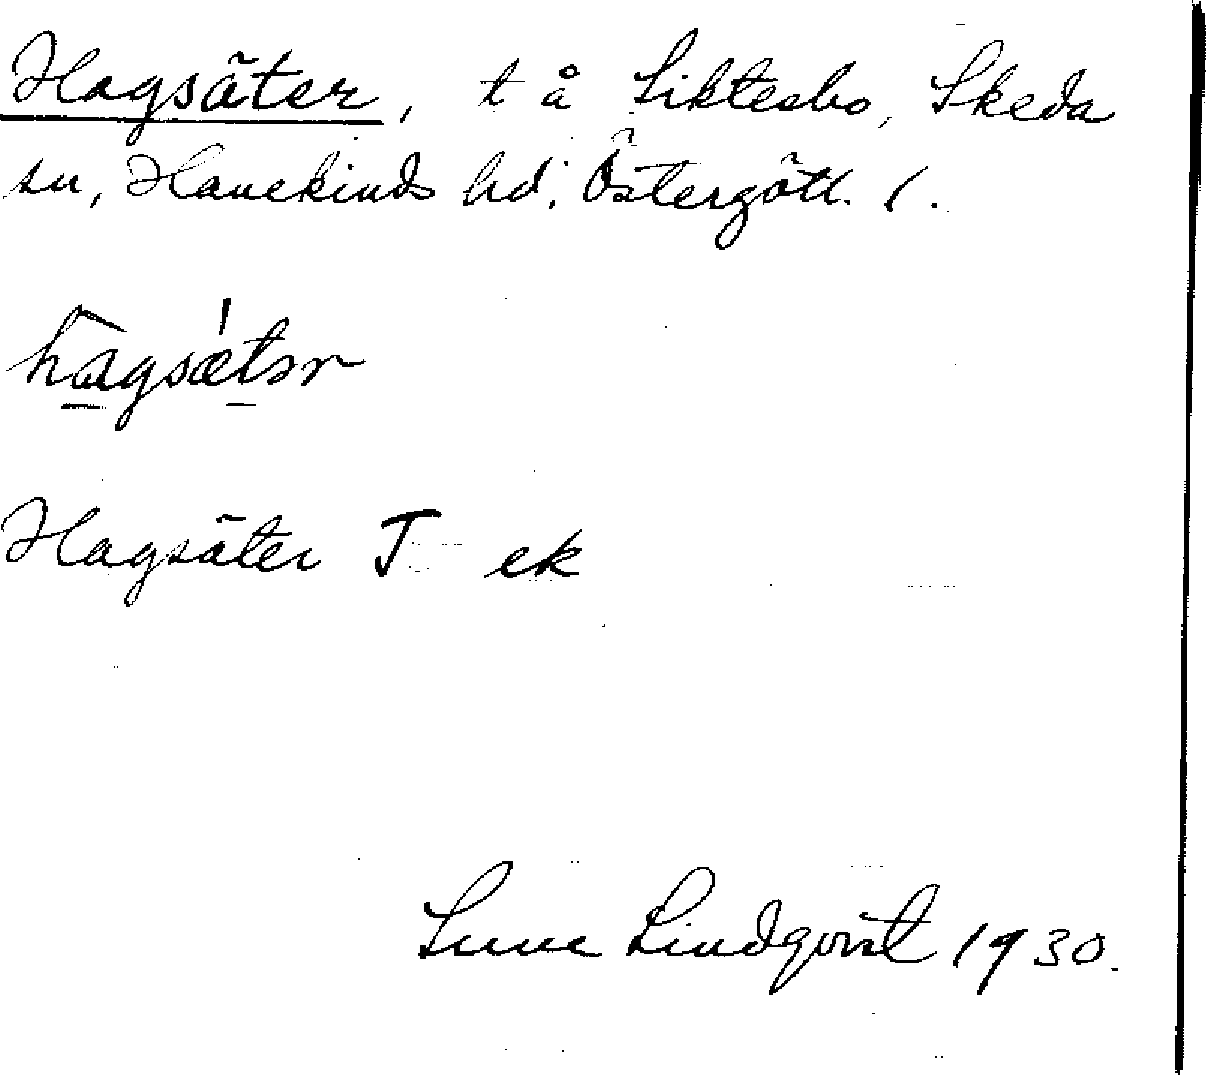 Hagsäter, t å Siktesbo, Skeda
sn, Hanekinds hd, Östergötl. l.
hagsætər
Hagsäter T ek
Sune Lindqvist 1930.